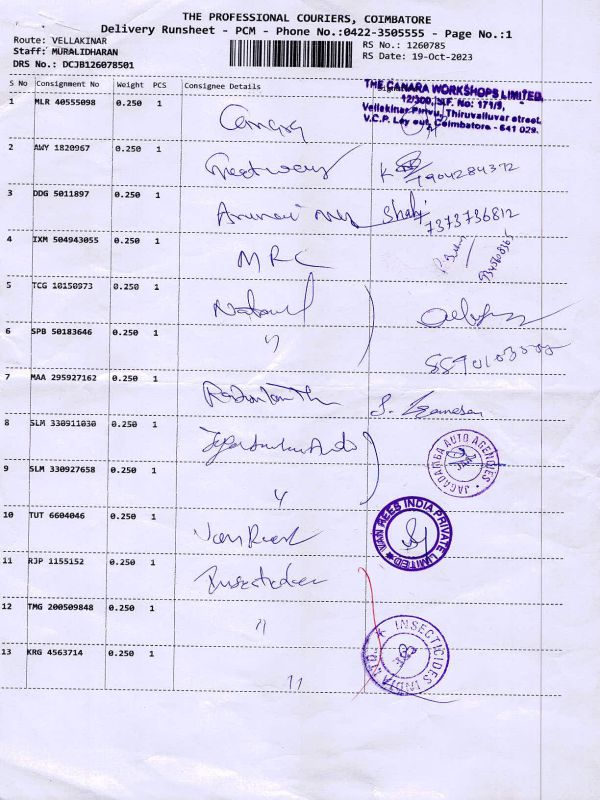 THE PROFESSIONAL COURIERS, COIMBATORE
Delivery Runsheet - PCM - Phone No.:0422-3505555 - Page No.:1
Route: VELLAKINAR
Staff: MURALIDHARAN
DRS No.: DCJB126078501
RS No.: 1260785
RS Date: 19-Oct-2023
S No Consignment No Weight PCS Consignee Details
THE CANARA WORKSHOPS LIMITED,
12/300, S.F. No: 171/3,
Vellakinar Pirivu, Thiruvalluvar street,
V.C.P. Lay out, Coimbatore - 641 029.
1 MLR 40555098 0.250 1 Canara
2 AWY 1820967 0.250 1
7904284372
3 DDG 5011897 0.250 1 Shaji
7373736812
4 IXM 504943055 0.250 1 MRC
5 TCG 10150973 0.250 1
6 SPB 50183646 0.250 1 "
7 MAA 295927162 0.250 1
8 SLM 330911030 0.250 1
JAGADAMBA AUTO AGENCIES
9 SLM 330927658 0.250 1 "
10 TUT 6604046 0.250 1 Van Rees
VAN REES INDIA PRIVATE LIMITED
11 RJP 1155152 0.250 1
12 TMG 200509848 0.250 1 "
INSECTICIDES INDIA LTD.
13 KRG 4563714 0.250 1 "